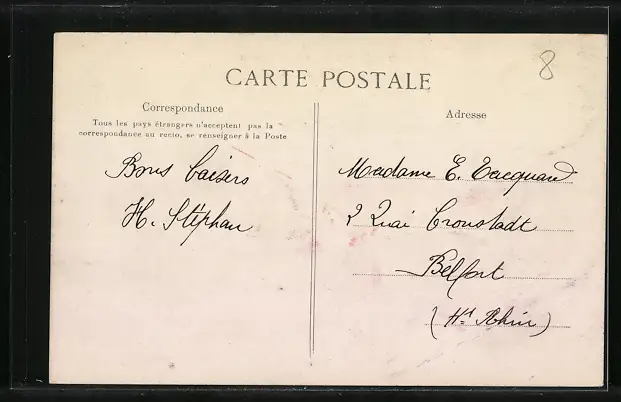 8
CARTE POSTALE
Correspondance
Tous les pays étrangers n'acceptent pas la
correspondance au recto, se renseigner à la Poste
Adresse
Bons baisers
H. Stéphan
Madame E. Tacquard
2 Quai Cronstadt
Belfort
(Ht Rhin)